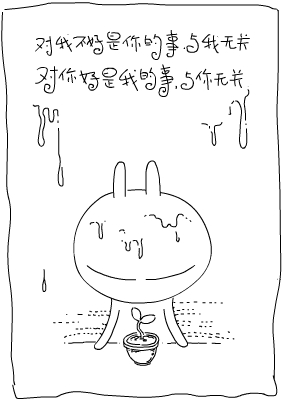 对我不好是你的事,与我无关
对你好是我的事,与你无关